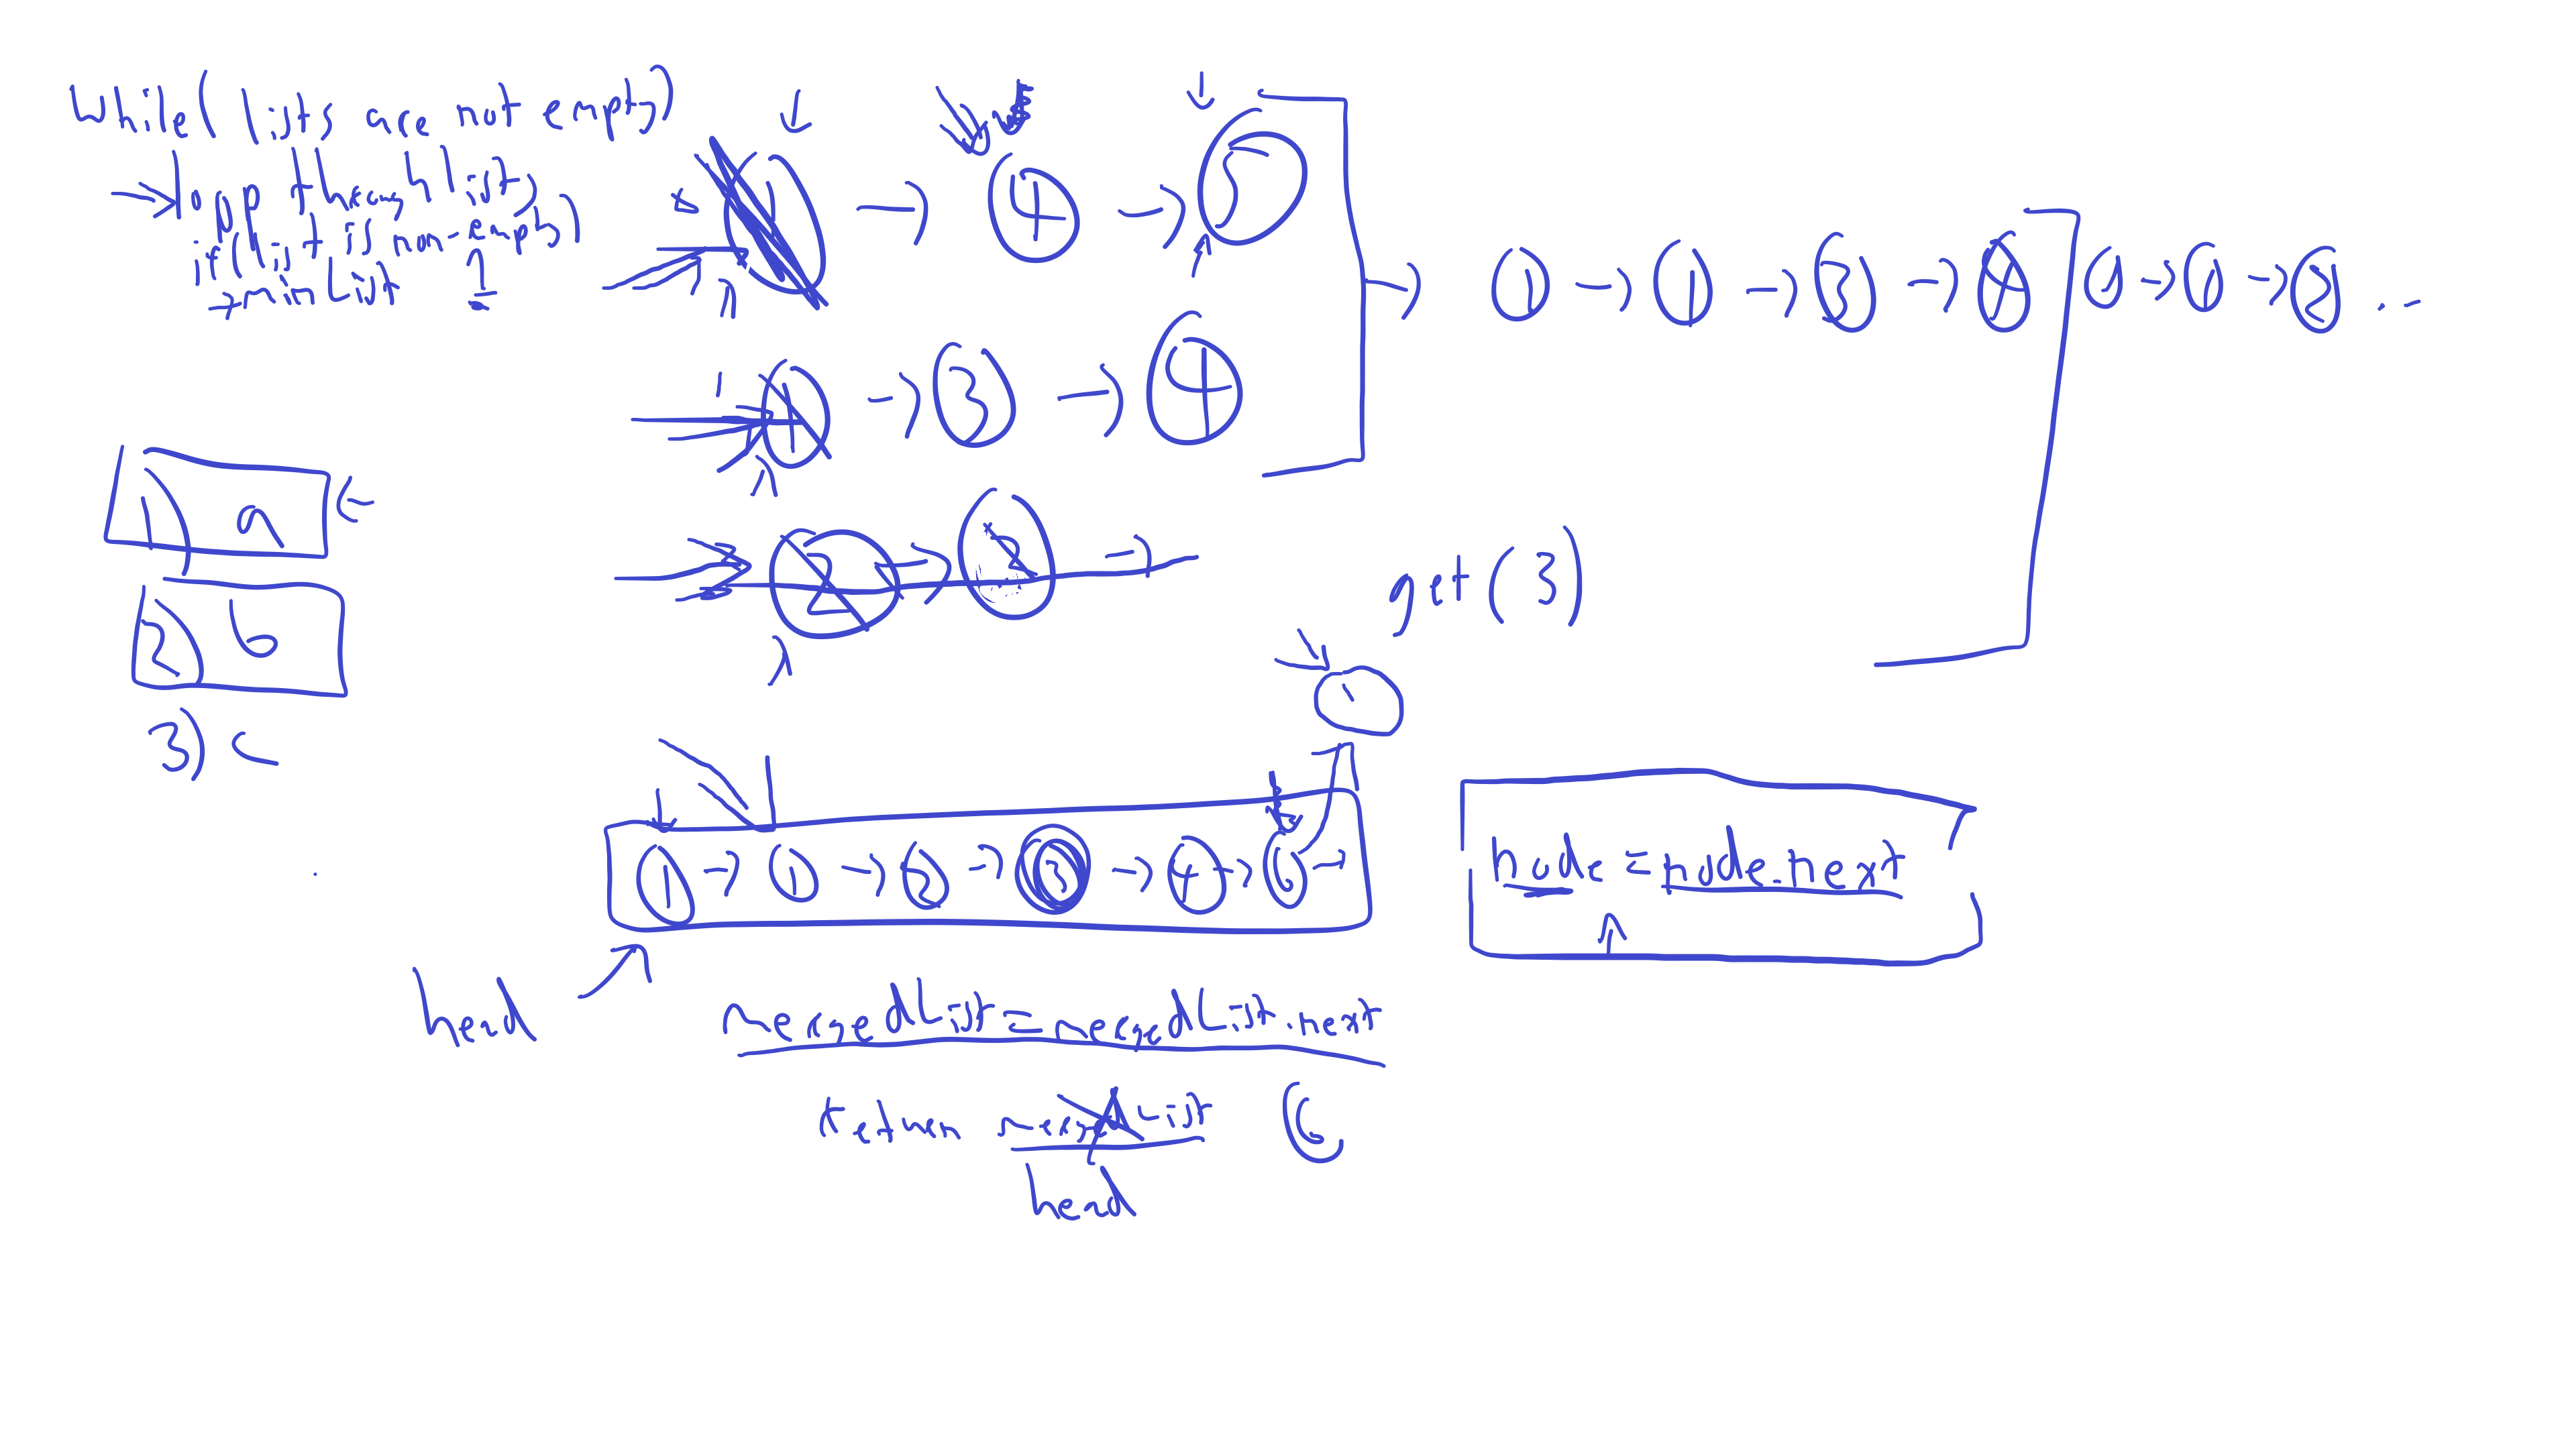 while(lists are not empty)
→ loop through list)
if(list is non-empty)
→ min List 1
1 → 4 → 5
→ 1 → 1 → 3 → 4
1 → 1 → 2 ..
1 → 3 → 4
1) a
2 →
2) b
get(3)
3) c
1 → 1 → 2 → 3 → 4 → 6 →
node = node.next
head
mergedList = mergedList.next
return mergedList 6
head